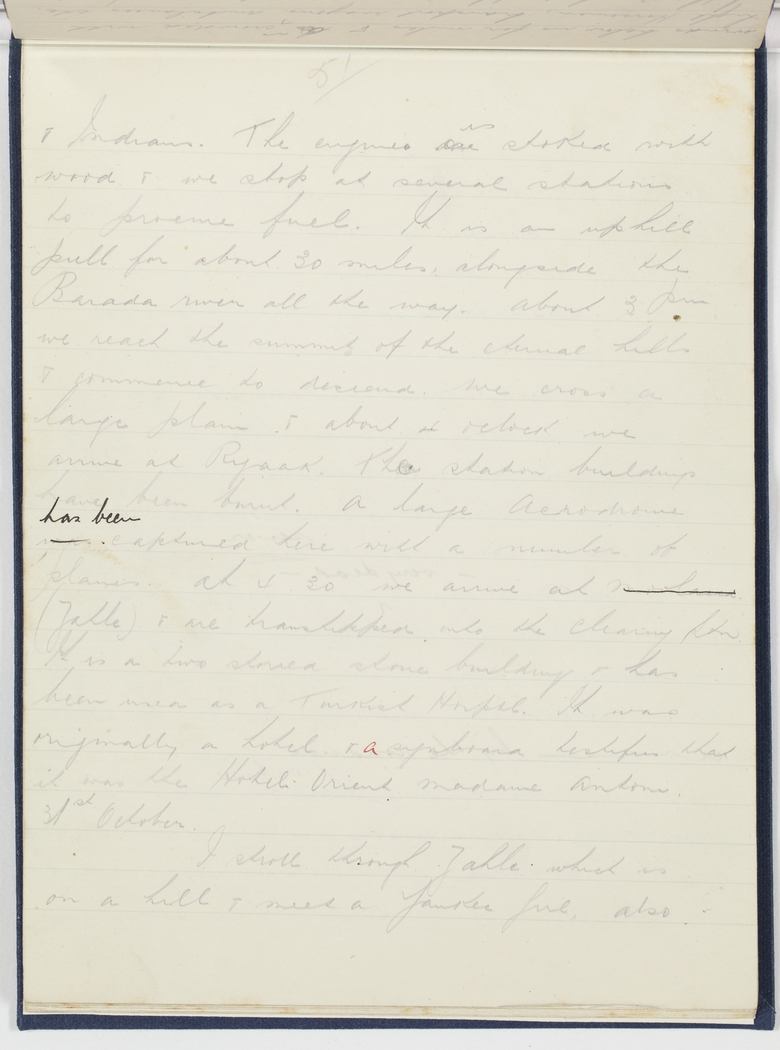 51
& Indians. The engines is stoked with
wood & we stop at several stations
to procure fuel. It is an uphill
pull for about 30 miles, alongside the
Barada river all the way. About 3 pm
we reach the summit of the eternal hills
& commence to descend. We cross a
large plain & about 4 oclock we
arrive at Ryaak. The station buildings
have been burnt. A large Aerodrome
has been captured here with a number of
planes. At 4.30 we arrive at
(Zahle) & are transhipped into the clearing Stn.
It is a two storied stone building & has
been used as a Turkish Hospl. It was
originally a hotel & a signboard testifies that
it was the Hotel Orient Madame Antoni.
31st October.
I stroll through Zahle which is
on a hill & meet a Yankee girl, also